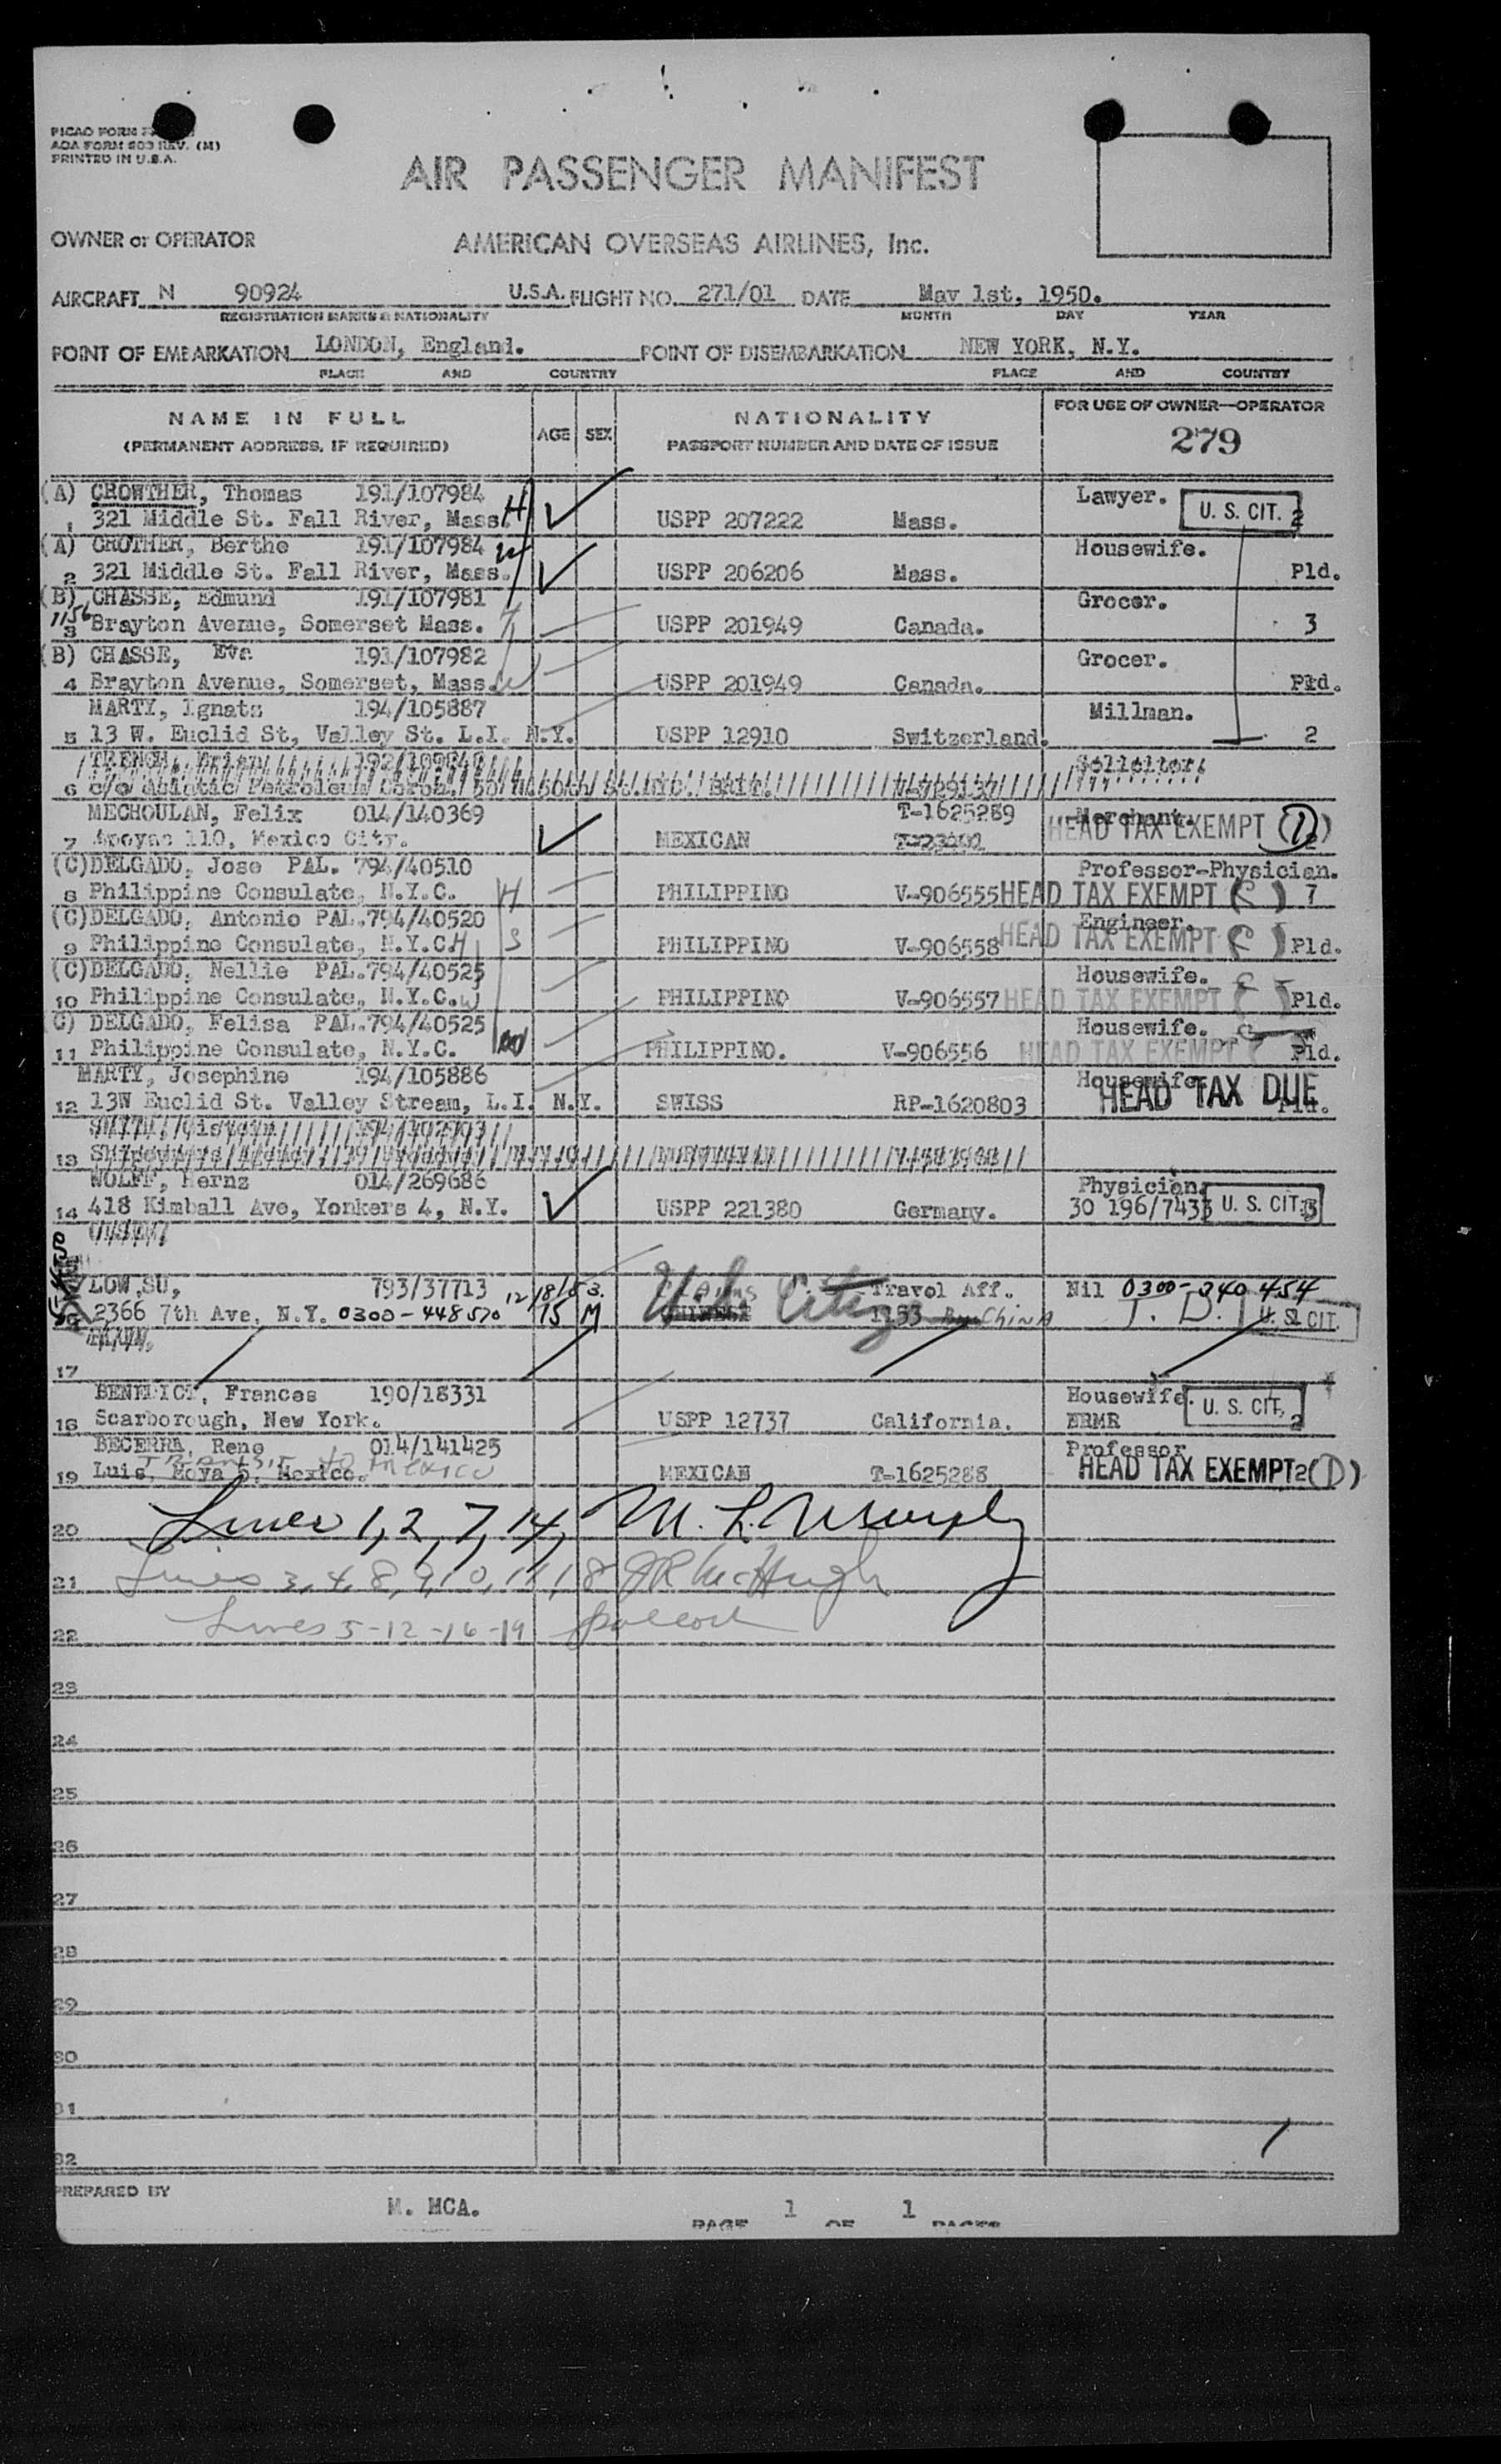 PICAO FORM
AOA FORM 603 REV. (M)
PRINTED IN U.S.A.
AIR PASSENGER MANIFEST
OWNER or OPERATOR AMERICAN OVERSEAS AIRLINES, Inc.
AIRCRAFT N 90924 U.S.A. FLIGHT NO. 271/01 DATE May 1st, 1950.
REGISTRATION MARKS & NATIONALITY MONTH DAY YEAR
POINT OF EMBARKATION LONDON, England. POINT OF DISEMBARKATION NEW YORK, N.Y.
PLACE AND COUNTRY PLACE AND COUNTRY
NAME IN FULL AGE SEX NATIONALITY FOR USE OF OWNER—OPERATOR
(PERMANENT ADDRESS, IF REQUIRED) PASSPORT NUMBER AND DATE OF ISSUE 279
(A) CROWTHER, Thomas 191/107984 H Lawyer. U. S. CIT. 2
1 321 Middle St. Fall River, Mass. USPP 207222 Mass.
(A) CROTHER, Berthe 191/107984 W Housewife.
2 321 Middle St. Fall River, Mass. USPP 206206 Mass. Pld.
(B) CHASSE, Edmund 191/107981 Grocer.
1156
3 Brayton Avenue, Somerset Mass. H USPP 201949 Canada. 3
(B) CHASSE, Eva 191/107982 Grocer.
4 Brayton Avenue, Somerset, Mass. W USPP 201949 Canada. Pld.
MARTY, Ignatz 194/105887 Millman.
5 13 W. Euclid St, Valley St. L.I. N.Y. USPP 12910 Switzerland. 2
Sollicitor.
6 c/o Asiatic Petroleum
MECHOULAN, Felix 014/140369 T-1625289 Merchant.
7 110, Mexico City. MEXICAN HEAD TAX EXEMPT (1)
(C) DELGADO, Jose PAL. 794/40510 Professor-Physician.
8 Philippine Consulate, N.Y.C. H PHILIPPINO V-906555 HEAD TAX EXEMPT ( ) 7
(C) DELGADO, Antonio PAL. 794/40520 Engineer.
9 Philippine Consulate, N.Y.C. H S PHILIPPINO V-906558 HEAD TAX EXEMPT ( ) Pld.
(C) DELGADO, Nellie PAL. 794/40525 Housewife.
10 Philippine Consulate, N.Y.C. W PHILIPPINO V-906557 HEAD TAX EXEMPT ( ) Pld.
C) DELGADO, Felisa PAL. 794/40525 Housewife.
11 Philippine Consulate, N.Y.C. PHILIPPINO. V-906556 HEAD TAX EXEMPT ( Pld.
MARTY, Josephine 194/105886 Housewife
12 13W Euclid St. Valley Stream, L.I. N.Y. SWISS RP-1620803 HEAD TAX DUE Pld.
13
WOLFF, Hernz 014/269686 Physician.
14 418 Kimball Ave, Yonkers 4, N.Y. USPP 221380 Germany. 30 196/7433 U. S. CIT. 3
LOW SU, 793/37713 12/18/53. Claims U.S. City Travel Aff. Nil 0300-340 454
2366 7th Ave. N.Y. 0300-448570 15 M CHINESE 1153 China T. D. 1 U. S. CIT.
17
BENEDICT, Frances 190/18331 Housewife. U. S. CIT. 2
18 Scarborough, New York. USPP 12737 California. NRMR
BECERRA, Rene 014/141425 Professor
Transit to Mexico
19 Luis, Moya 5, Mexico. MEXICAN T-1625288 HEAD TAX EXEMPT 2 (1)
20 Lines 1, 2, 7, 14, M. L. Murphy
21 Lines 3, 4, 8, 9, 10, 11, 18 JR McHugh
22 Lines 5-12-16-19 Pollock
23
24
25
26
27
28
29
30
31
32
PREPARED BY M. MCA. PAGE 1 OF 1 PAGES